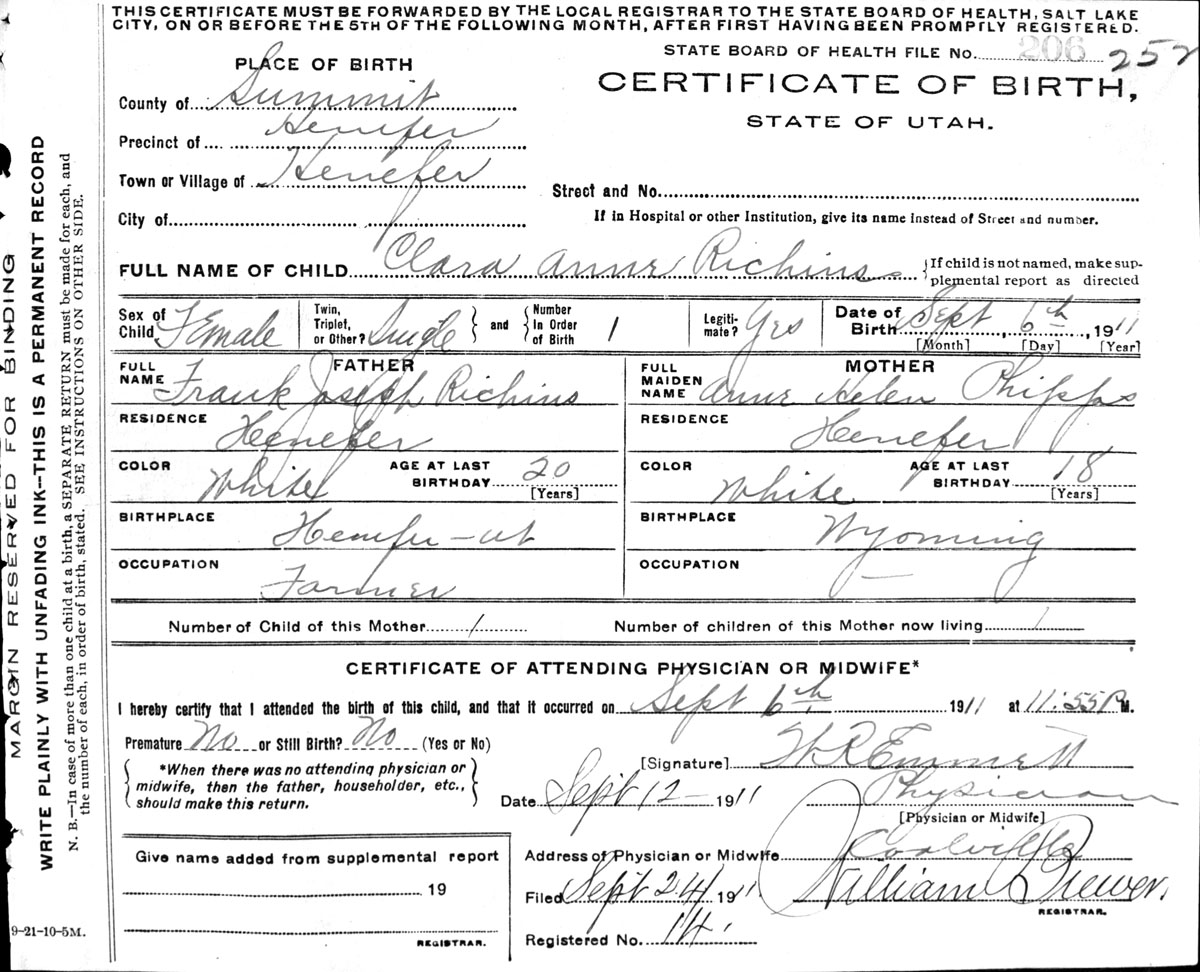 THIS CERTIFICATE MUST BE FORWARDED BY THE LOCAL REGISTRAR TO THE STATE BOARD OF HEALTH, SALT LAKE
CITY, ON OR BEFORE THE 5TH OF THE FOLLOWING MONTH, AFTER FIRST HAVING BEEN PROMPTLY REGISTERED.
STATE BOARD OF HEALTH FILE No. 206 252
PLACE OF BIRTH
CERTIFICATE OF BIRTH,
STATE OF UTAH.
County of Summit
Precinct of Henefer
Town or Village of Henefer
Street and No.
City of
If in Hospital or other Institution, give its name instead of Street and number.
FULL NAME OF CHILD Clara Anne Richins {If child is not named, make sup-
plemental report as directed
Sex of Child Female Twin, Triplet, or Other? Single } and { Number In Order of Birth 1 Legiti-mate? Yes Date of Birth Sept, 6th, 1911
[Month] [Day] [Year]
FATHER MOTHER
FULL NAME Frank Joseph Richins FULL MAIDEN NAME Anne Helen Phipps
RESIDENCE Henefer RESIDENCE Henefer
COLOR White AGE AT LAST BIRTHDAY 20 [Years] COLOR White AGE AT LAST BIRTHDAY 18 [Years]
BIRTHPLACE Henefer - ut BIRTHPLACE Wyoming
OCCUPATION Farmer OCCUPATION —
Number of Child of this Mother 1 Number of children of this Mother now living 1
CERTIFICATE OF ATTENDING PHYSICIAN OR MIDWIFE*
I hereby certify that I attended the birth of this child, and that it occurred on Sept 6th 1911 at 11:55 P M.
Premature No or Still Birth? No (Yes or No)
{ *When there was no attending physician or
midwife, then the father, householder, etc.,
should make this return. }
[Signature] W R Emmett
Date Sept 12 - 1911 Physician
[Physician or Midwife]
Address of Physician or Midwife Coalville
Filed Sept 24 1911 William Brewer.
REGISTRAR.
Registered No. 14
Give name added from supplemental report
19
REGISTRAR.
MARGIN RESERVED FOR BINDING
WRITE PLAINLY WITH UNFADING INK--THIS IS A PERMANENT RECORD
N. B.—In case of more than one child at a birth, a SEPARATE RETURN must be made for each, and
the number of each, in order of birth, stated. SEE INSTRUCTIONS ON OTHER SIDE.
9-21-10-5M.